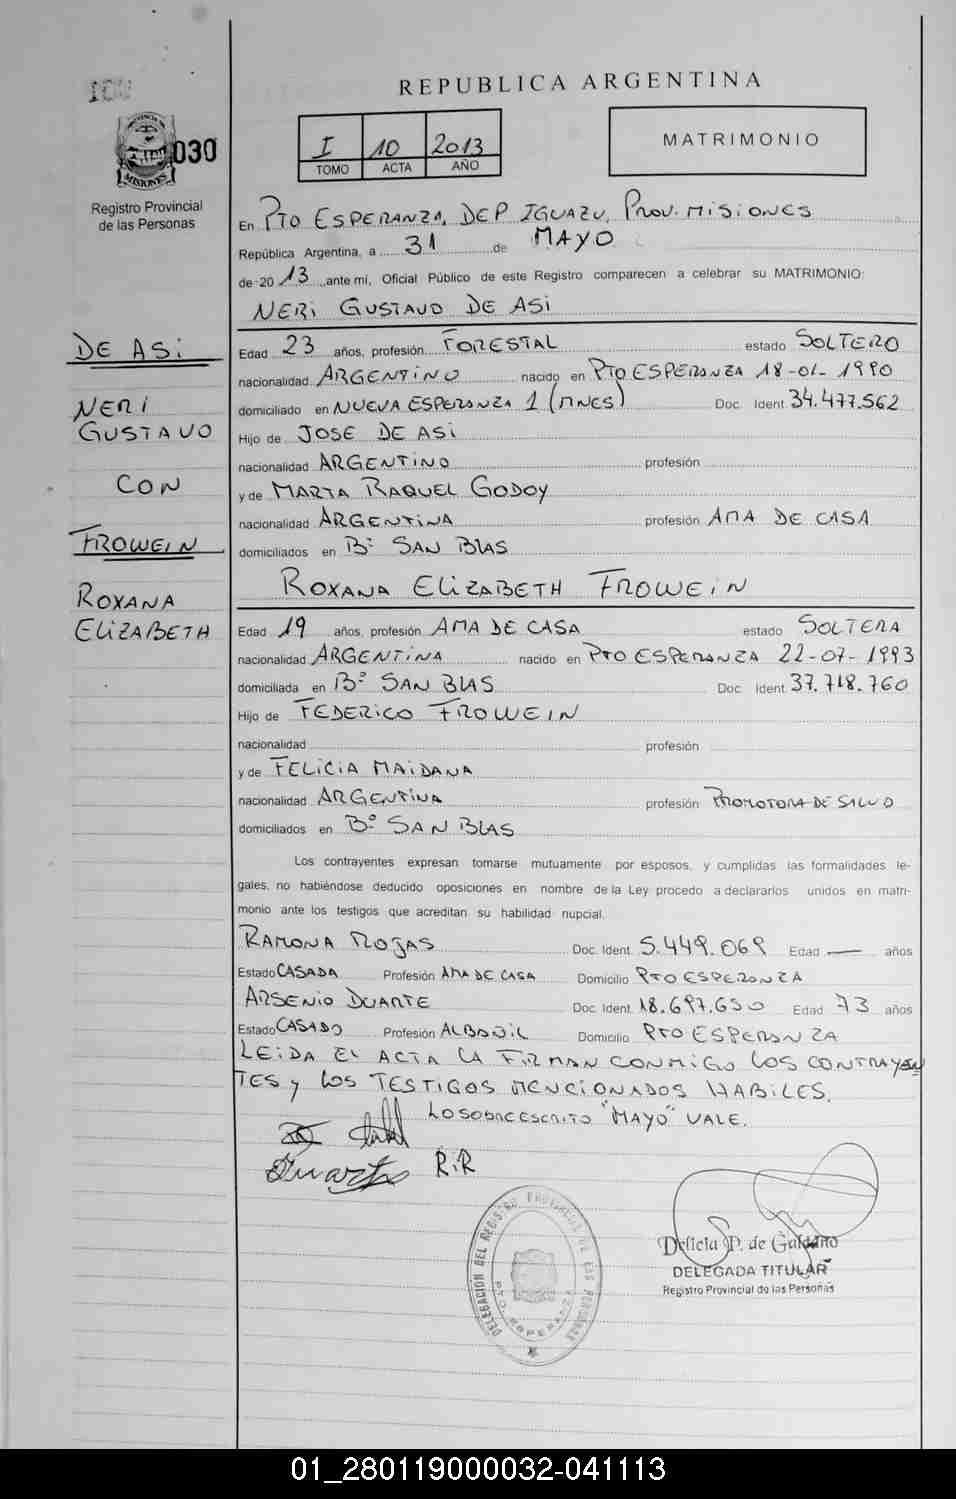 REPUBLICA ARGENTINA
I 10 2013
TOMO ACTA AÑO
MATRIMONIO
PROVINCIA DE
MISIONES
030
Registro Provincial
de las Personas
En PTO ESPERANZA, DEP IGUAZU, PROV. MISIONES
República Argentina, a 31 de MAYO
de 2013, ante mi, Oficial Público de este Registro comparecen a celebrar su MATRIMONIO:
NERI GUSTAVO DE ASI
DE ASI
NERI
GUSTAVO
CON
FROWEIN
ROXANA
ELIZABETH
Edad 23 años, profesión FORESTAL estado SOLTERO
nacionalidad ARGENTINO nacido en PTO ESPERANZA 18-01-1990
domiciliado en NUEVA ESPERANZA 1 (MNES) Doc. Ident. 34.477.562
Hijo de JOSE DE ASI
nacionalidad ARGENTINO profesión
y de MARTA RAQUEL GODOY
nacionalidad ARGENTINA profesión AMA DE CASA
domiciliados en Bº SAN BLAS
ROXANA ELIZABETH FROWEIN
Edad 19 años, profesión AMA DE CASA estado SOLTERA
nacionalidad ARGENTINA nacido en PTO ESPERANZA 22-07-1993
domiciliada en Bº SAN BLAS Doc. Ident. 37.718.760
Hijo de FEDERICO FROWEIN
nacionalidad profesión
y de FELICIA MAIDANA
nacionalidad ARGENTINA profesión PROMOTORA DE SALUD
domiciliados en Bº SAN BLAS
Los contrayentes expresan tomarse mutuamente por esposos, y cumplidas las formalidades le-
gales, no habiéndose deducido oposiciones en nombre de la Ley procedo a declararlos unidos en matri-
monio ante los testigos que acreditan su habilidad nupcial.
RAMONA ROJAS Doc. Ident. 5.449.069 Edad — años
Estado CASADA Profesión AMA DE CASA Domicilio PTO ESPERANZA
ARSENIO DUARTE Doc. Ident. 18.697.650 Edad 73 años
Estado CASADO Profesión ALBAÑIL Domicilio PTO ESPERANZA
LEIDA EL ACTA LA FIRMAN CONMIGO LOS CONTRAYEN
TES Y LOS TESTIGOS MENCIONADOS HABILES.
LO SOBREESCRITO "MAYO" VALE.
Duarte R.R
DELEGACION DEL REGISTRO PROVINCIAL DE LAS PERSONAS
PTO. ESPERANZA
Delicia P. de Galeano
DELEGADA TITULAR
Registro Provincial de las Personas
01_280119000032-041113